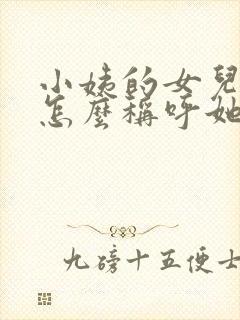 小姨的女兒
怎麼稱呼她
九磅十五便士